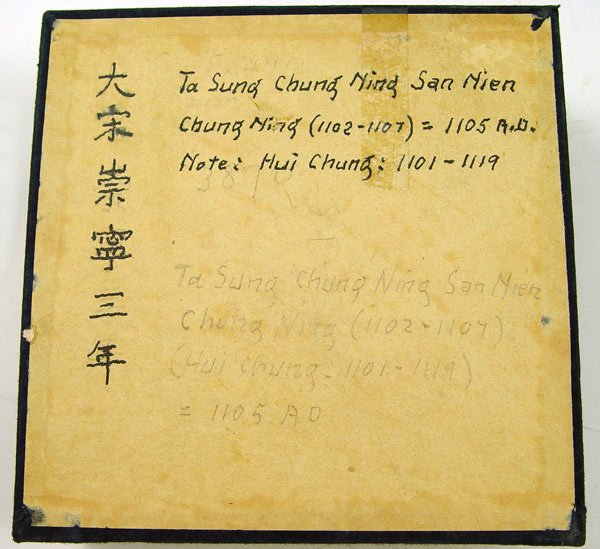 大宋崇寧三年
Ta Sung Chung Ning San Nien
Chung Ning (1102-1107) = 1105 A.D.
Note: Hui Chung: 1101-1119
Ta Sung Chung Ning San Nien
Chung Ning (1102-1107)
(Hui Chung. 1101-1119)
= 1105 AD